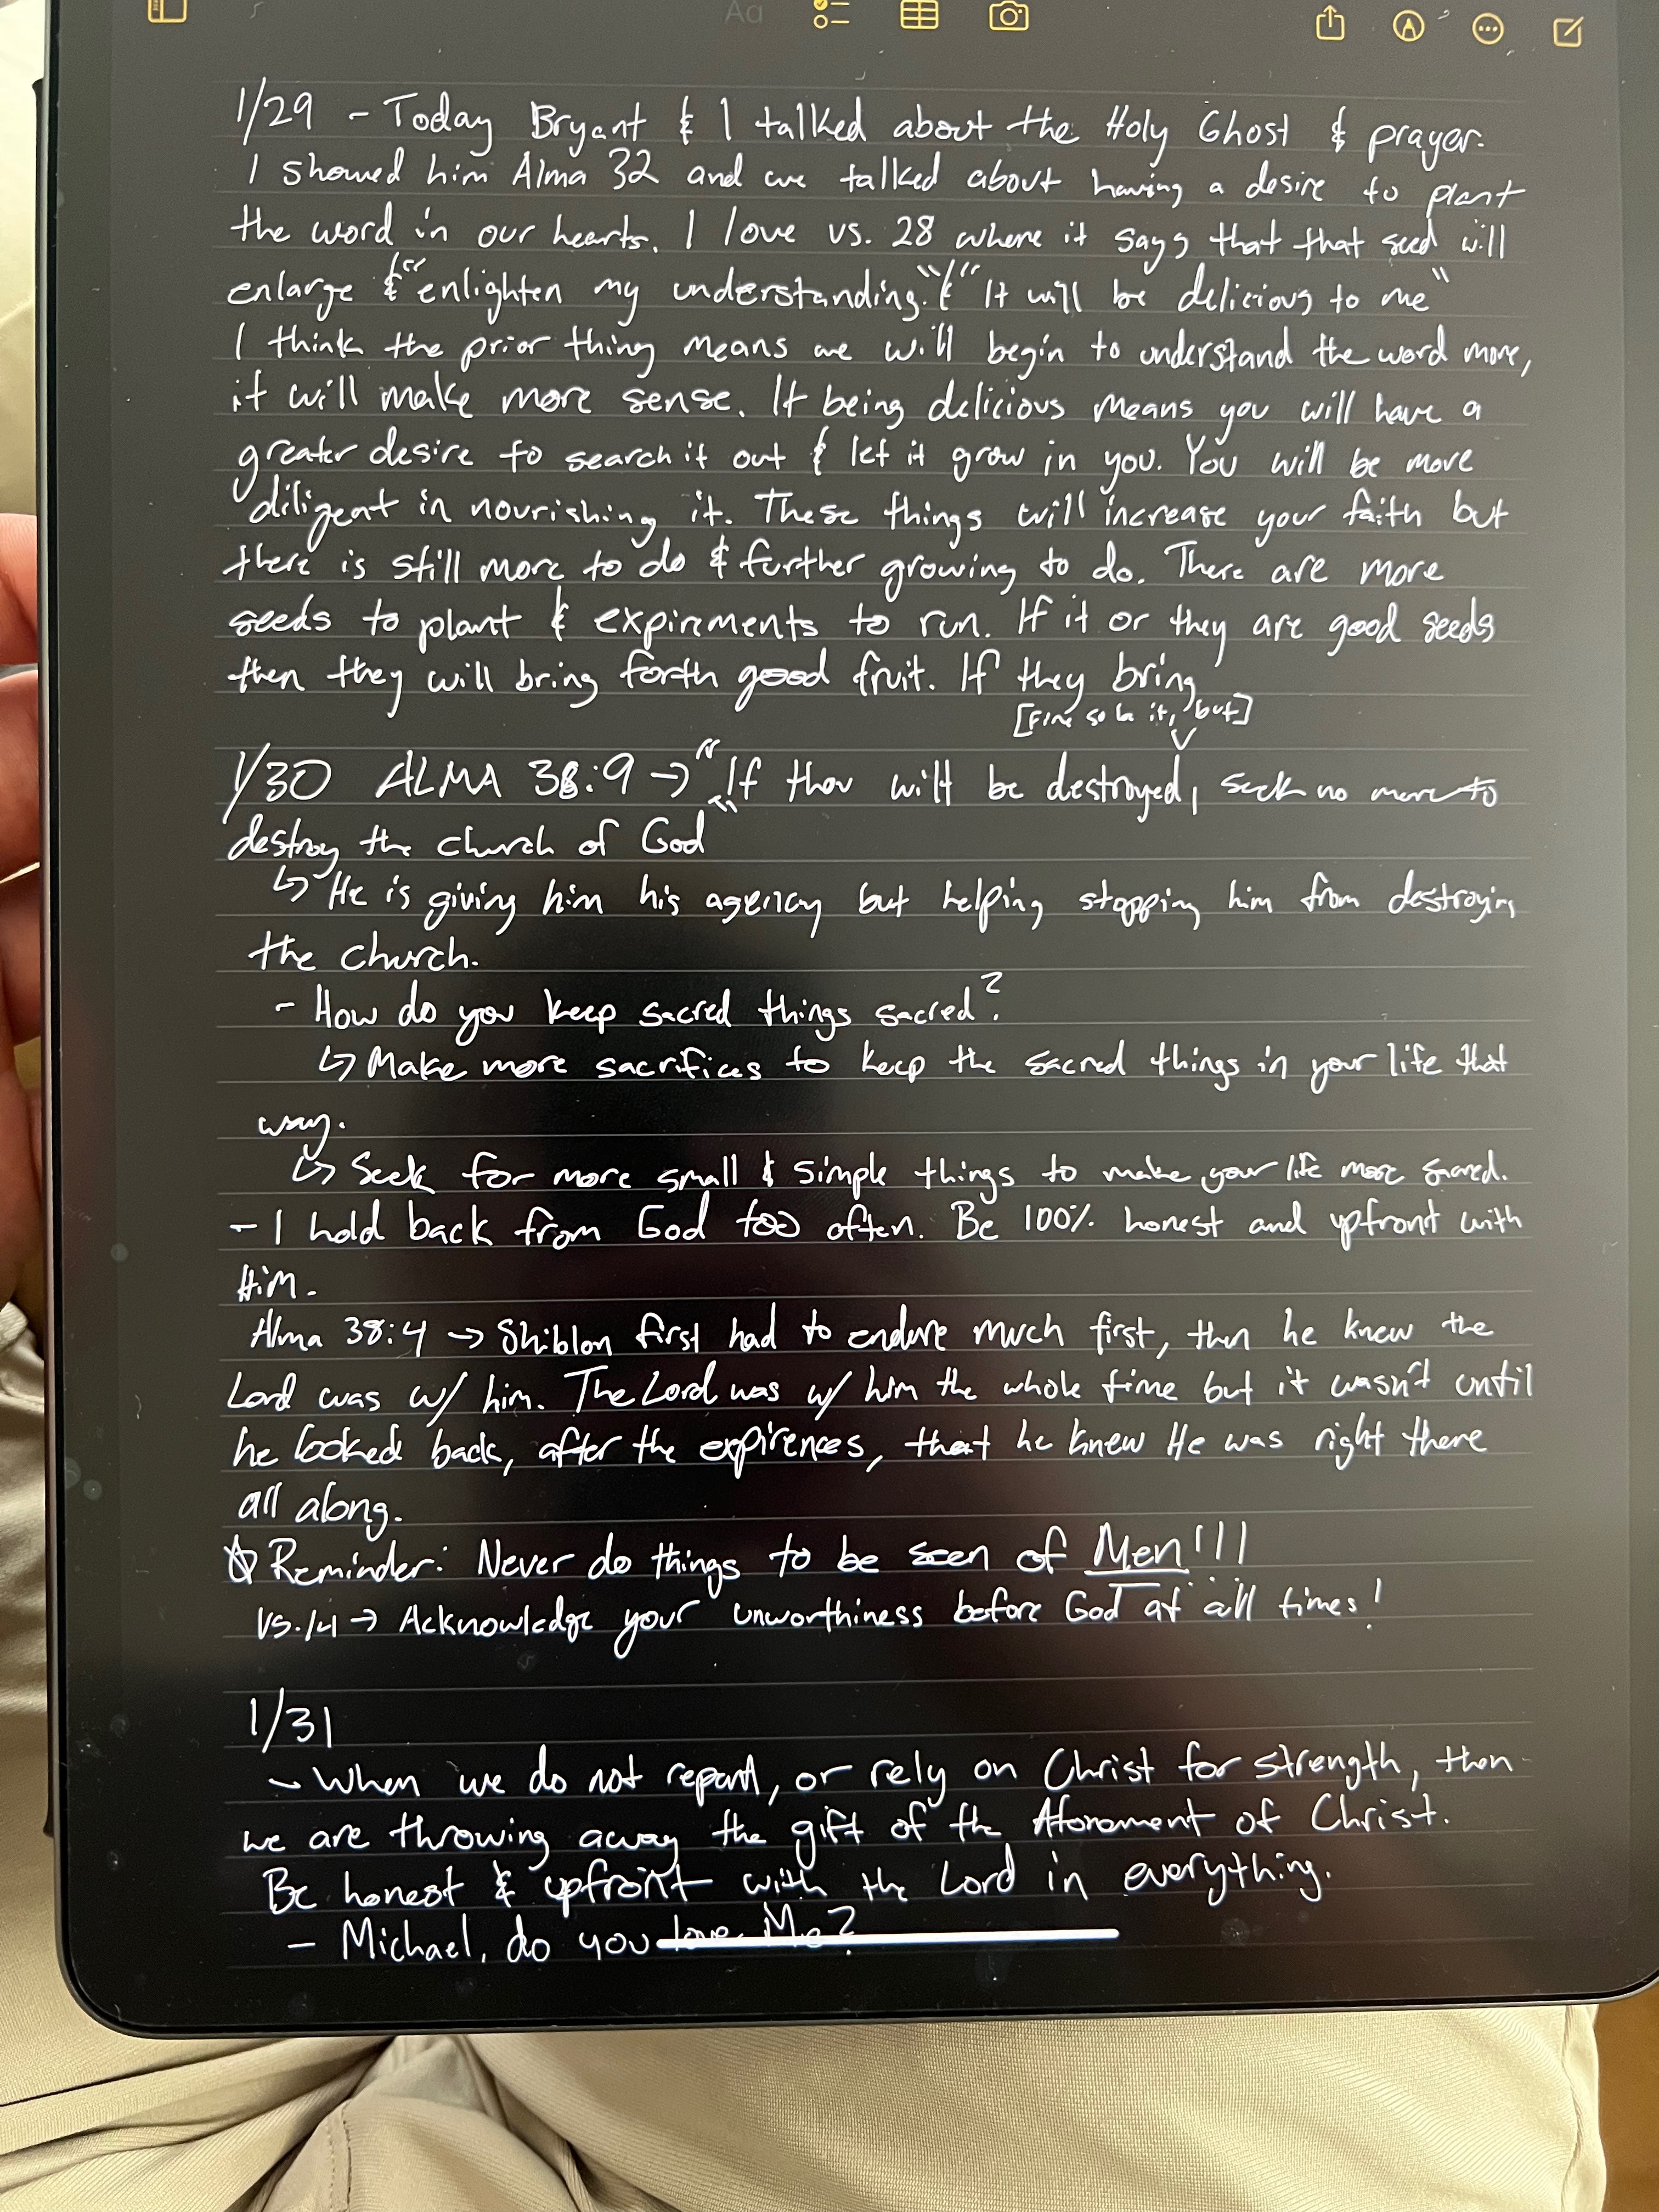 Aa
1/29 - Today Bryant & I talked about the Holy Ghost & prayer.
I showed him Alma 32 and we talked about having a desire to plant
the word in our hearts. I love vs. 28 where it says that that seed will
enlarge &/"enlighten my understanding."/&"It will be delicious to me"
I think the prior thing means we will begin to understand the word more,
it will make more sense. It being delicious means you will have a
greater desire to search it out & let it grow in you. You will be more
diligent in nourishing it. These things will increase your faith but
there is still more to do & further growing to do. There are more
seeds to plant & expirements to run. If it or they are good seeds
then they will bring forth good fruit. If they bring
[Fine so be it, but]
1/30 ALMA 38:9 → "If thou wilt be destroyed, seek no more to
destroy the church of God"
↳ He is giving him his agency but helping stopping him from destroying
the church.
- How do you keep sacred things sacred?
↳ Make more sacrifices to keep the sacred things in your life that
way.
↳ Seek for more small & simple things to make your life more sacred.
- I hold back from God too often. Be 100% honest and upfront with
Him.
Alma 38:4 → Shiblon first had to endure much first, then he knew the
Lord was w/ him. The Lord was w/ him the whole time but it wasn't until
he looked back, after the expirences, that he knew He was right there
all along.
☆ Reminder: Never do things to be seen of Men!!!
vs. 14 → Acknowledge your unworthiness before God at all times!
1/31
- When we do not repent, or rely on Christ for strength, then
we are throwing away the gift of the Atonement of Christ.
Be honest & upfront with the Lord in everything.
- Michael, do you love Me?